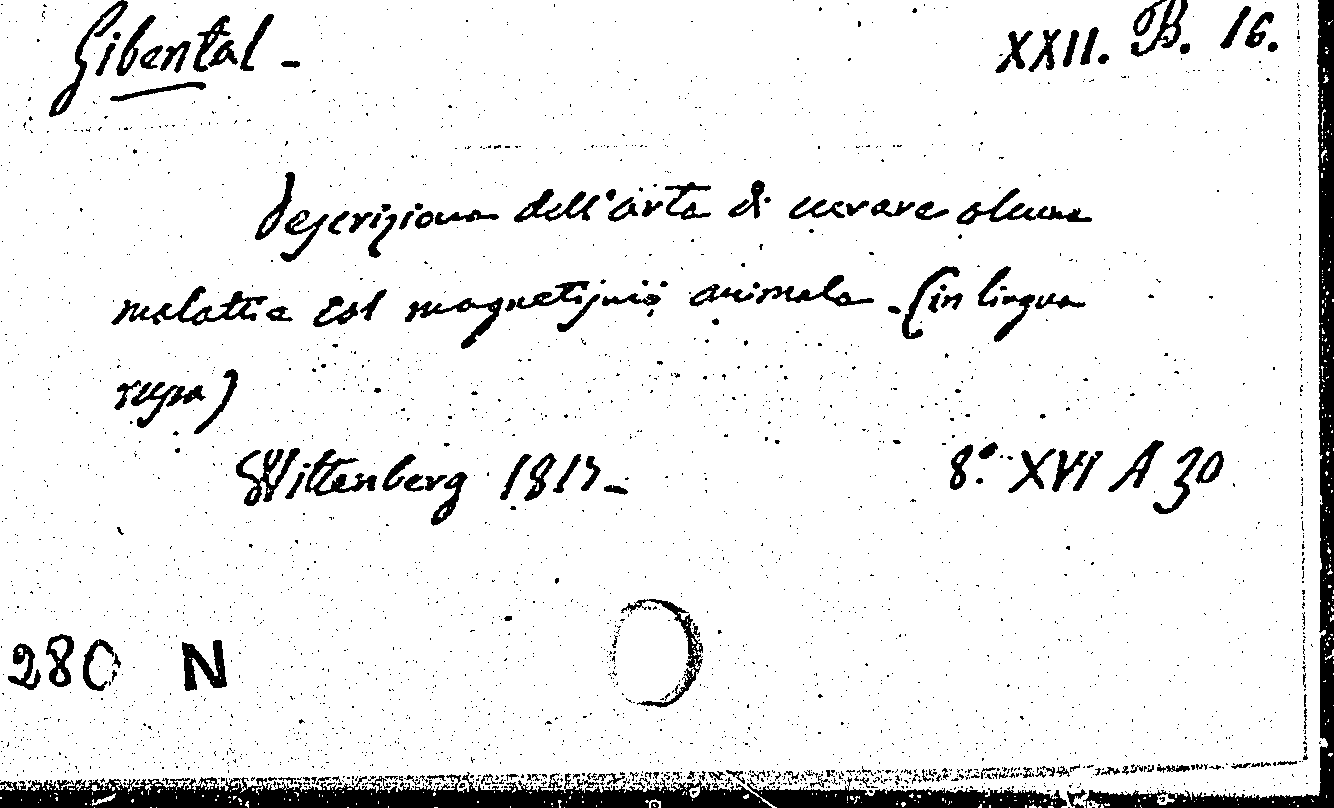 Gibental - XXII. B. 16.
Descrizione dell'arte di curare alcune
malattie col magnetismo animale - (in lingua
russa)
Wittenberg 1815 - 8.° XVI A 30
280 N